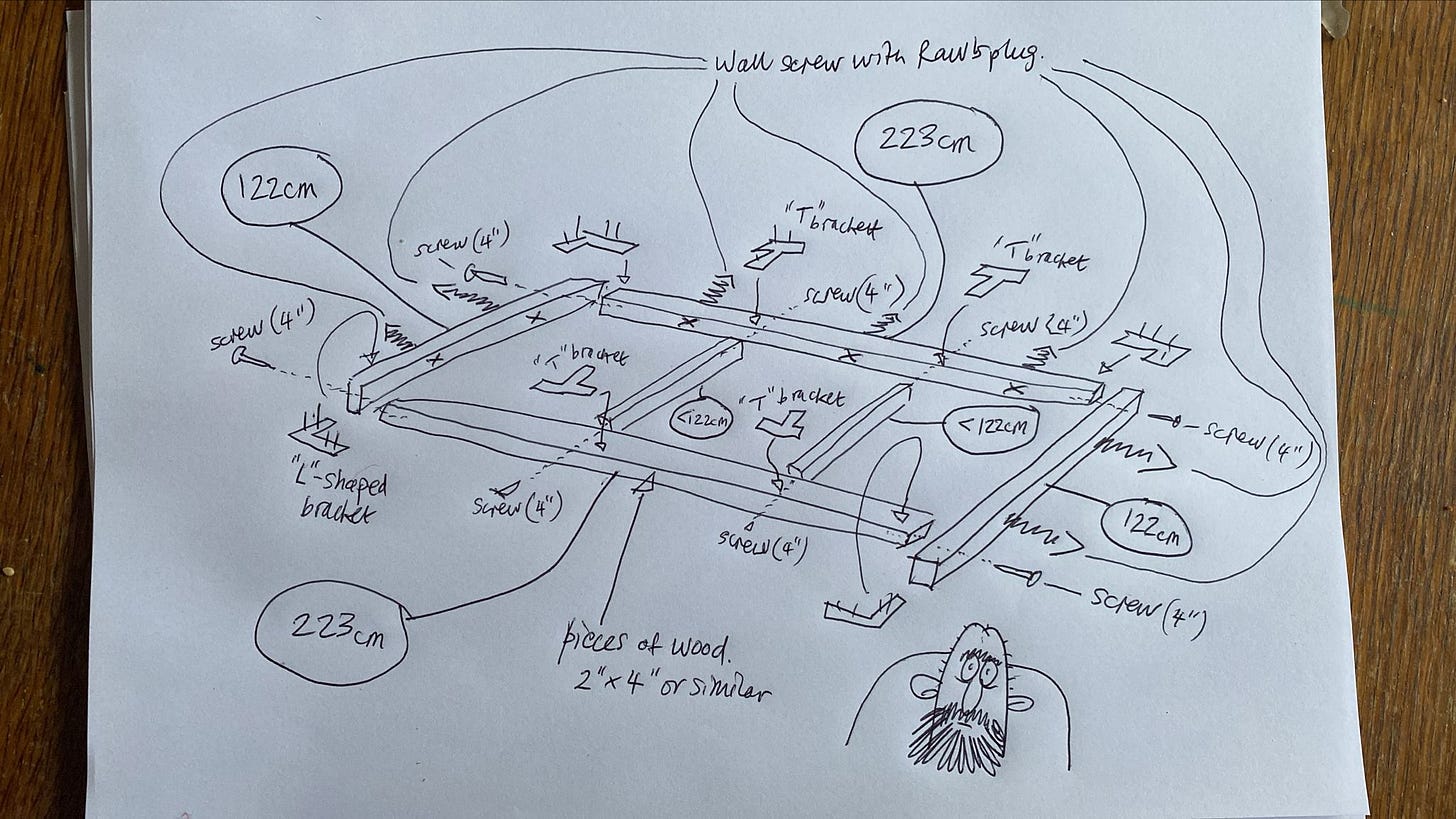 Wall screw with Rawlplug.
223cm
122cm
"T" bracket
screw (4")
"T" bracket
screw (4")
screw (4")
screw (4")
"T" bracket
"T" bracket
<122cm
<122cm
screw (4")
"L"-shaped
bracket
screw (4")
screw (4")
122cm
screw (4")
223cm
pieces of wood.
2"x4" or similar